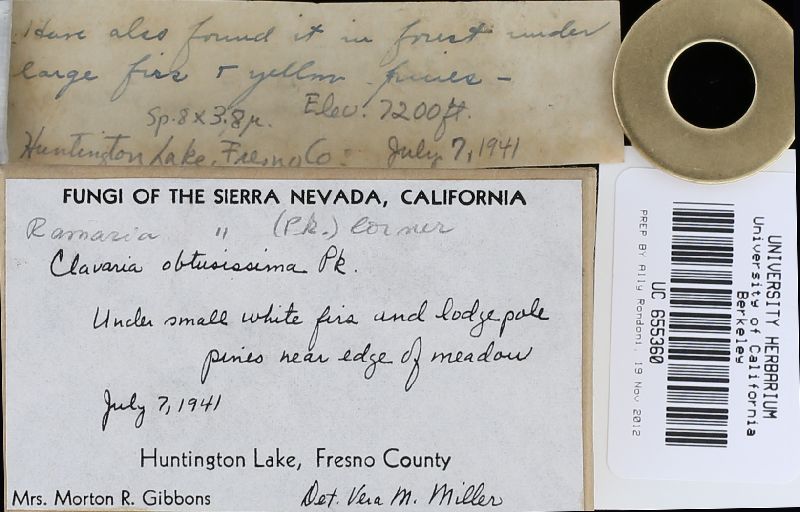 Have also found it in forest under
large firs + yellow pines -
Sp. 8 x 3.8 µ. Elev. 7200 ft.
Huntington Lake, Fresno Co. July 7, 1941
FUNGI OF THE SIERRA NEVADA, CALIFORNIA
Ramaria " (Pk.) Corner
Clavaria obtusissima Pk.
Under small white firs and lodgepole
pines near edge of meadow
July 7, 1941
Huntington Lake, Fresno County
Mrs. Morton R. Gibbons Det. Vera M. Miller
UNIVERSITY HERBARIUM
University of California
Berkeley
UC 655360
PREP BY Ally Rondoni, 19 Nov 2012